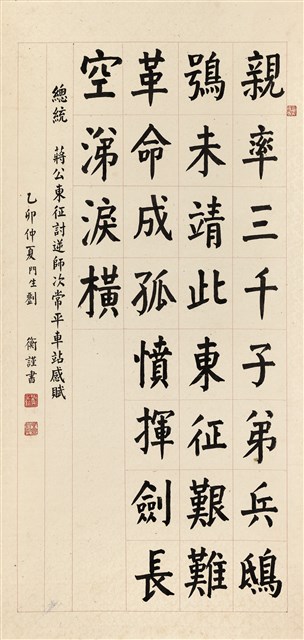 親率三千子弟兵鴟
鴞未靖此東征艱難
革命成孤憤揮劍長
空涕淚橫
總統　蔣公東征討逆師次常平車站感賦
乙卯仲夏門生劉　衡謹書